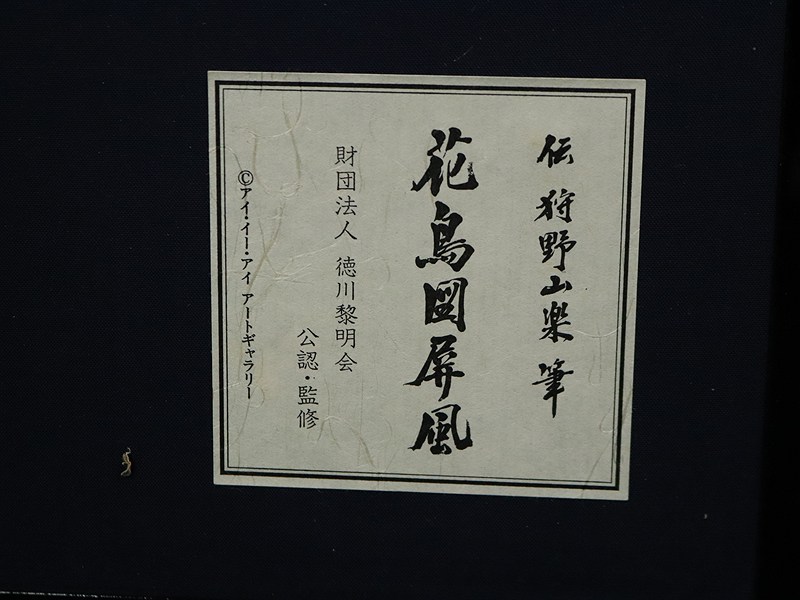 伝 狩野山楽 筆
花鳥図屏風
財団法人 徳川黎明会
公認・監修
©アイ・イー・アイ アートギャラリー